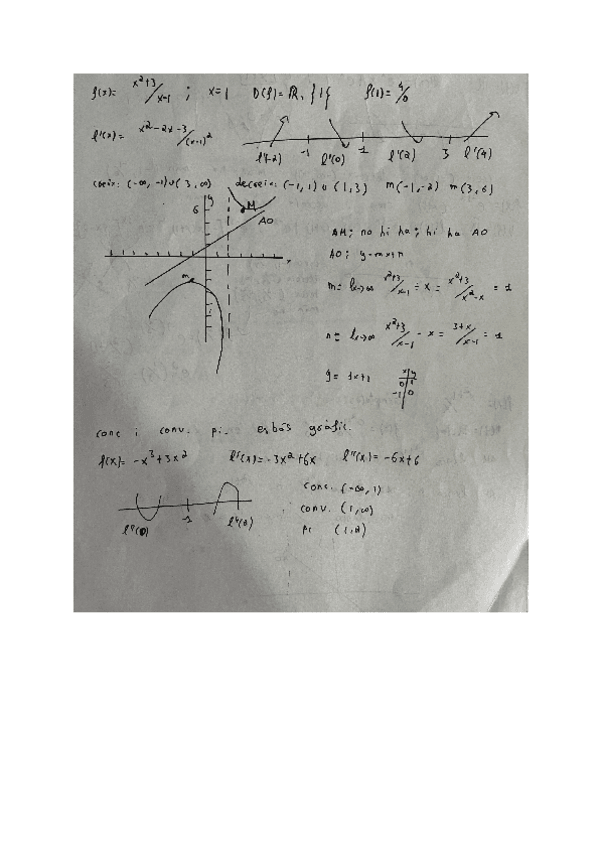 f(x)= x²+3/x-1 ; x=1 D(f)=ℝ \ {1} f(1)= 4/0
f'(x)= x²-2x-3/(x-1)²
f'(-2) -1 f'(0) 1 f'(2) 3 f'(4)
creix: (-∞, -1)∪(3, ∞) decreix: (-1, 1) ∪ (1, 3) m(-1,-2) m(3,6)
6 y M AO
x
m
AH; no hi ha; hi ha AO
AO; y=mx+n
m= lx→∞ x²+3/x-1 ÷ x = x²+3/x²-x = 1
n= lx→∞ x²+3/x-1 - x = 3+x/x-1 = 1
y= 1x+1
x y
0 1
-1 0
conc i conv. pi. esbós gràfic.
f(x)= -x³+3x² f'(x)= -3x²+6x f''(x)= -6x+6
f''(0) 1
conc. (-∞, 1)
conv. (1, ∞)
pi (1, 2)